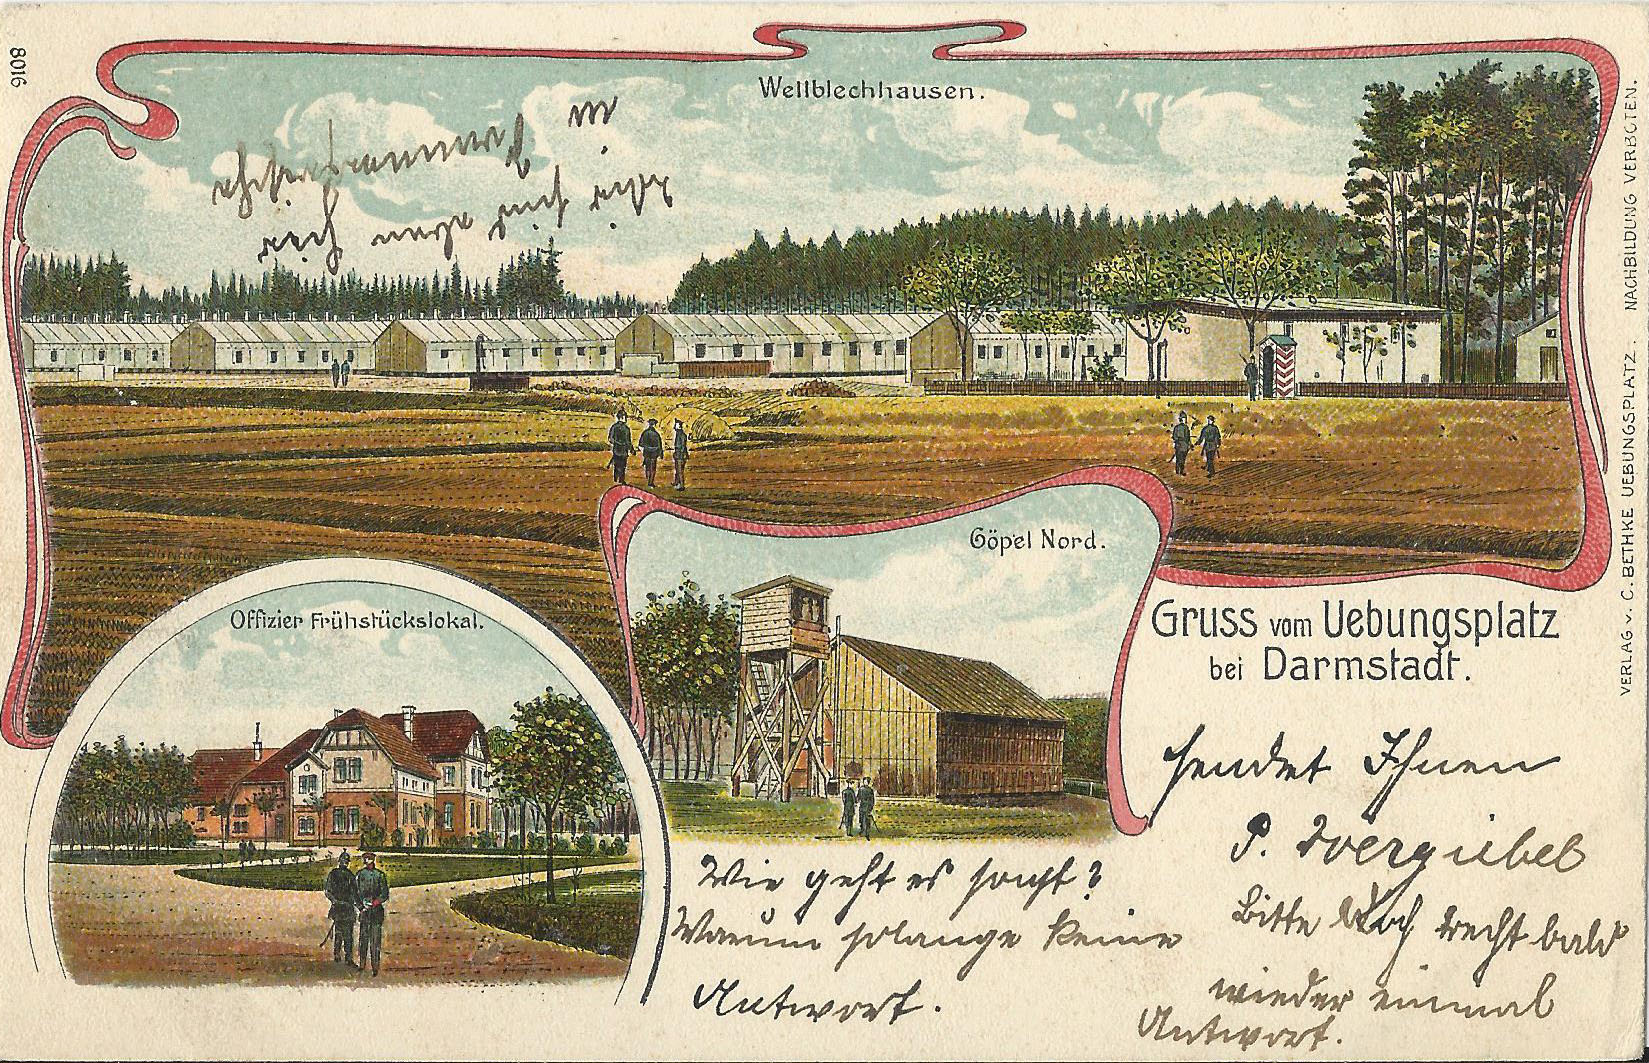 8016
Wellblechhausen.
Göpel Nord.
Offizier Frühstückslokal.
Gruss vom Uebungsplatz
bei Darmstadt.
sendet Ihnen
P.
Bitte doch recht bald
wieder einmal
Antwort.
Wie geht es sonst?
Warum solange keine
Antwort.
VERLAG v. C. BETHKE UEBUNGSPLATZ. NACHBILDUNG VERBOTEN.